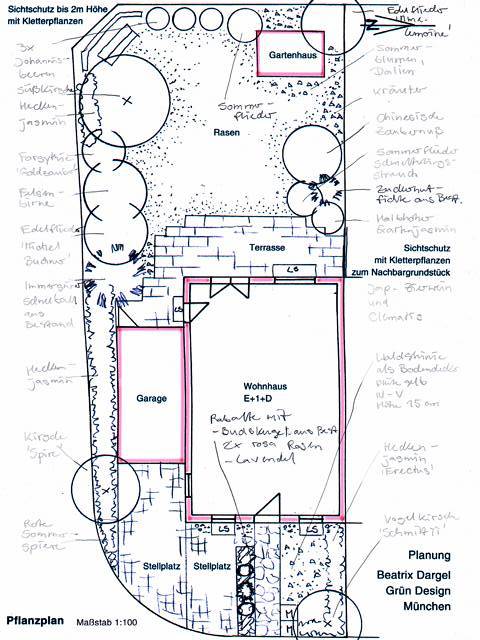 Sichtschutz bis 2m Höhe
mit Kletterpflanzen
Edelflieder
3x
Johannis-
beeren
Süßkirsche
Hecken-
jasmin
Forsythie
Felsen-
birne
Edelflieder
Immergrüner
Schneeball
aus
Bestand
Hecken-
jasmin
Kirsche
'Spire'
Rote
Sommer-
spiere
Gartenhaus
Sommer-
flieder
Rasen
Sommer-
blumen,
Dalien
Kräuter
Chinesische
Zaubernuß
Sommerflieder
Schmetterlings-
strauch
Zuckerhut-
fichte aus Best.
Halbhoher
Gartenjasmin
Terrasse
Sichtschutz
mit Kletterpflanzen
zum Nachbargrundstück
LS
LS
Jap.
und
Clematis
Waldsteinie
als Bodendecker
blüht gelb
IV-V
Höhe 25 cm
Garage
Wohnhaus
E+1+D
Rabatte mit
- Buchskugel aus Best
2x rosa Rosen
- Lavendel
Hecken-
jasmin
'Erectus'
LS
LS
Vogelkirsche
Stellplatz
Stellplatz
M
M
Planung
Beatrix Dargel
Grün Design
München
Pflanzplan Maßstab 1:100